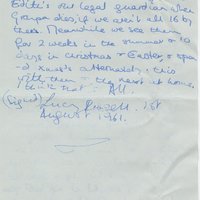 Edith's our legal guardian when
Grandpa dies, if we aren't all 16 by
then. Meanwhile we see them
for 2 weeks in the summer & 10
days in christmas & Easter, & span
& xmas alternately, this
with them & the rest at home.
I think that's All.
(Signed) Lucy 1st
August 1961.